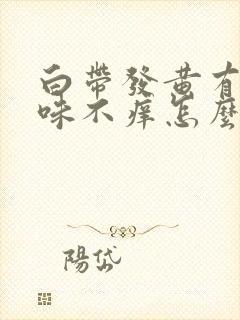 白帶發黄有
味不痒怎麼
陽岱